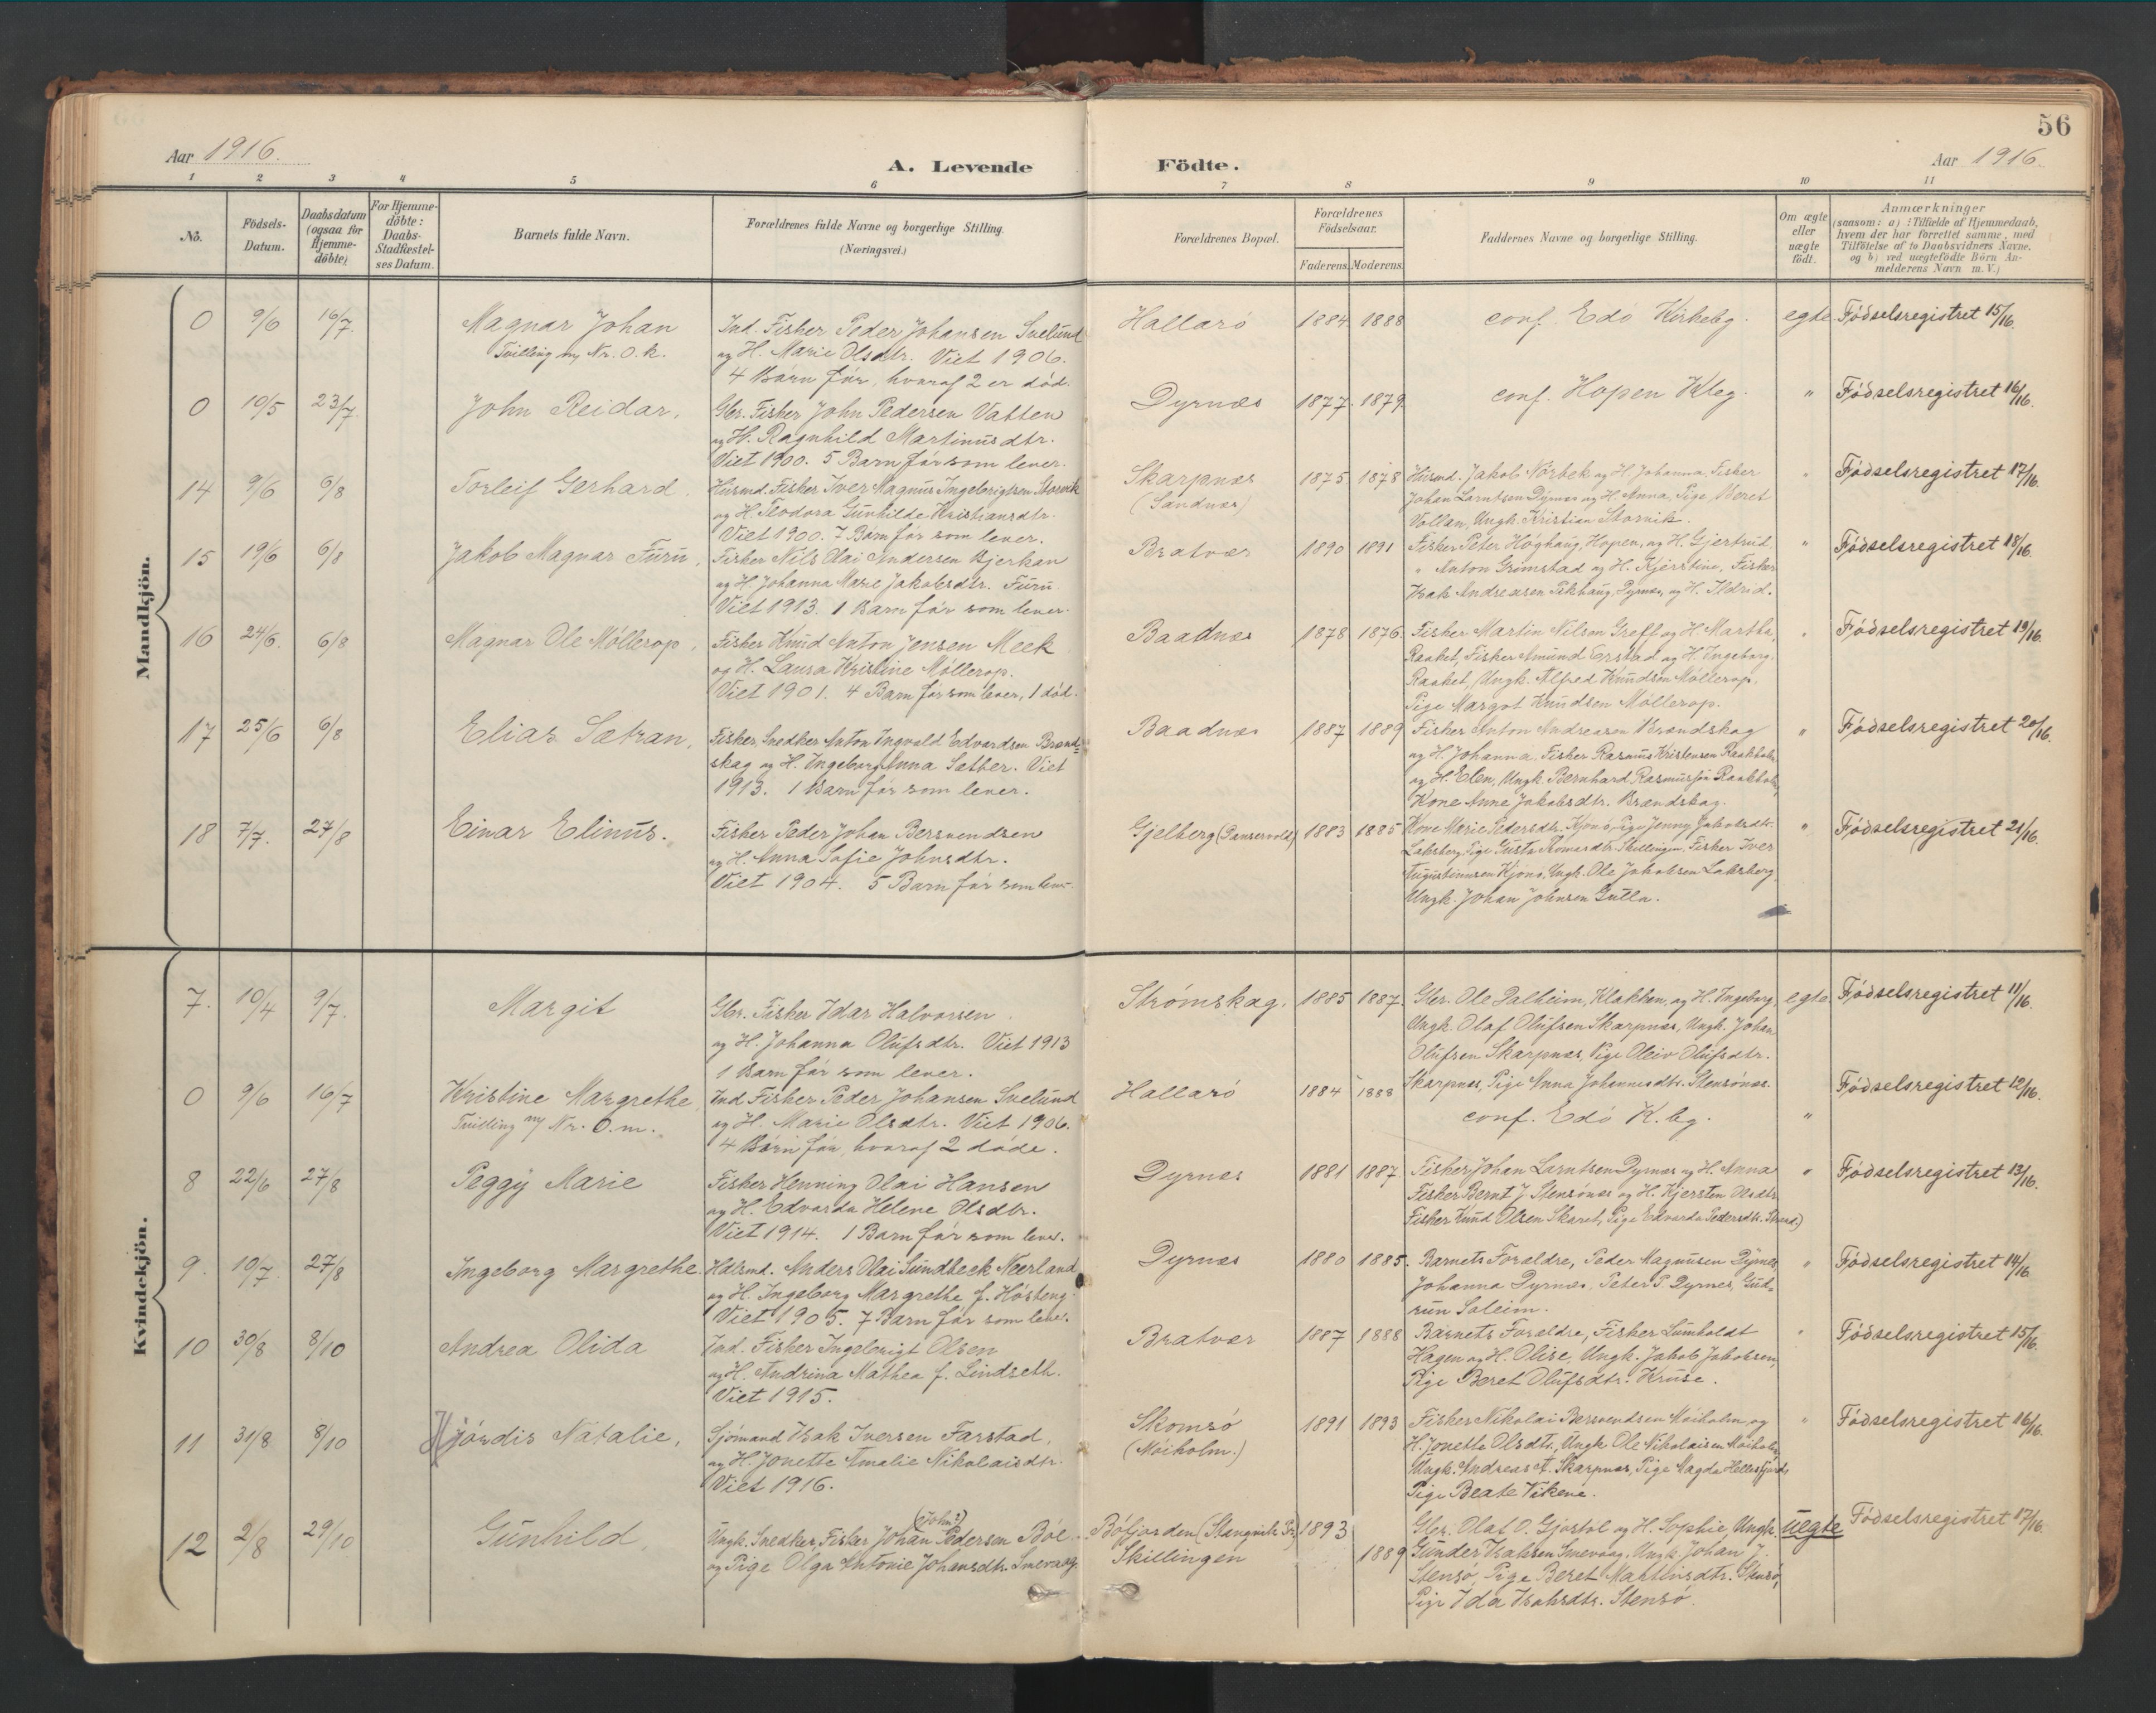 56
Aar 1916.
A. Levende Födte.
Aar 1916.
1 2 3 4 5 6 7 8 9 10 11
No.
Födsels-Datum.
Daabsdatum (ogsaa for Hjemme-döbte)
For Hjemme-döbte: Daabs-Stadfæstel-ses Datum.
Barnets fulde Navn.
Forældrenes fulde Navne og borgerlige Stilling. (Næringsvei.)
Forældrenes Bopæl.
Forældrenes Födselsaar.
Faderens. Moderens.
Faddernes Navne og borgerlige Stilling.
Om ægte eller uægte födt.
Anmærkninger
(saasom: a) : Tilfælde af Hjemmedaab,
hvem der har forrettet samme, med
Tilföielse af to Daabsvidners Navne.
og b) ved uægtefödte Börn An-
melderens Navn m. V.)
Mandkjön.
0 9/6 16/7. Magnar Johan
Tvilling m/ Nr. 0. k.
Ind. Fisker Peder Johansen Svelund
og H. Marie Olsdtr. Viet 1906.
4 Börn för, hvoraf 2 er död.
Hallarö 1884 1888 conf. Edö Kirkebg. egte. Födselsregistret 15/16.
0 10/5 23/7. John Reidar.
Gbr. Fisker John Pedersen Vatten
og H. Ragnhild Martinusdtr.
Viet 1900. 5 Barn för som lever.
Dyrnæs 1877. 1879. conf. Hopen Kbg. " Födselsregistret 16/16.
14 9/6 6/8 Torleif Gerhard.
Husmd. Fisker Iver Magnus Ingebrigtsen Storvik
og H. Teodora Gunhilde Kristiansdtr.
Viet 1900. 7 Börn för som lever.
Skarpnæs
(Sandnæs)
1875 1878
Husmd. Jakob Nörbek og H. Johanna, Fisker
Johan Larntsen Dyrnæs og H. Anna, Pige Beret
Vollan, Ungk. Kristian Storvik.
" Födselsregistret 17/16.
15 19/6 6/8 Jakob Magnar Furu.
Fisker Nils Olai Andersen Bjerkan
og H. Johanna Marie Jakobsdtr. Furu
Viet 1913. 1 Barn för som lever.
Bratvær 1890 1891
Fisker Peter Höghaug, Hopen, og H. Gjertrud
" Anton Grimstad og H. Kjerstine, Fisker
Isak Andreasen Pikhaug, Dyrnæs, og H. Ildrid.
" Födselsregistret 18/16.
16 24/6. 6/8 Magnar Ole Möllerop.
Fisker Knud Anton Jensen Meek
og H. Laura Kristine Möllerop.
Viet 1901. 4 Barn för som lever, 1 död.
Baadnæs 1878 1876.
Fisker Martin Nilsen Greff og H. Martha,
Raaket, Fisker Amund Erstad og H. Ingeborg.
Raaket, Ungk. Alfred Knudsen Möllerop.
Pige Margot Knudsen Möllerop.
" Födselsregistret 19/16.
17 25/6 6/8 Elias Sætran.
Fisker, Snedker Anton Ingvald Edvardsen Brand-
skag og H. Ingeborg Anna Sæther. Viet
1913. 1 Barn för som lever.
Baadnæs 1887 1889
Fisker Anton Andreasen Brandskag
og H. Johanna, Fisker Rasmus Kristensen Raakholm
og H. Elen, Ungk. Bernhard Rasmussen Raakholm,
Kone Anne Jakobsdtr. Brandskag.
" Födselsregistret 20/16.
18 7/7. 27/8 Einar Elinus.
Fisker Peder Johan Bersvendsen
og H. Anna Sofie Johnsdtr.
Viet 1904. 5 Barn för som lever.
Gjelberg 1883 1885
Kone Marie Pedersdtr. Kjönö, Pige Jenny Jakobsdtr.
Laksberg, Pige Gusta Thomasdtr. Skillingen, Fisker Iver
Augustinussen Kjönö, Ungk. Ole Jakobsen Laksberg.
Ungk. Johan Johnsen Gulla.
" Födselsregistret 21/16.
Kvindekjön.
7. 10/4 9/7. Margit
Gbr. Fisker Idar Halvorsen
og H. Johanna Olufsdtr. Viet 1913
1 Barn för som lever.
Strömskag. 1885 1887.
Gbr. Ole Dalheim, Klakken, og H. Ingeborg,
Ungk. Olaf Olufsen Skarpnæs, Ungk. Johan
Olufsen Skarpnæs, Pige Oleiv Olufsdtr.
Skarpnæs, Pige Anna Johannesdtr. Stensönæs.
egte Födselsregistret 11/16.
0 9/6 16/7 Kristine Margrethe
Tvilling m/ Nr. 0. m.
Ind. Fisker Peder Johansen Svelund
og H. Marie Olsdtr. Viet 1906.
4 Börn för, hvoraf 2 döde.
Hallarö 1884 1888 conf. Edö K.bg. " Födselsregistret 12/16.
8 22/6 27/8 Peggy Marie
Fisker Henning Olai Hansen
og H. Edvarda Helene Olsdtr.
Viet 1914. 1 Barn för som lever.
Dyrnæs 1881 1887.
Fisker Johan Larntsen Dyrnæs og H. Anna
Fisker Bernt J. Stensönæs og H. Kjersten Olsdtr.
Fisker Knud Olsen Skaret, Pige Edvarda Pedersdtr.
" Födselsregistret 13/16.
9. 10/7. 27/8 Ingeborg Margrethe.
Anders Olai Sundbeck Neerland
og H. Ingeborg Margrethe f. Hösteng.
Viet 1905. 7 Barn för som lever.
Dyrnæs 1880 1885.
Barnets Forældre, Peder Magnusen Dyrnes
Johanna Dyrnæs, Peter P. Dyrnes, Gud-
run Soleim.
" Födselsregistret 14/16
10 30/8 8/10 Andrea Olida
Ind. Fisker Ingebrigt Olsen
og H. Andrina Mathea f. Lindseth.
Viet 1915.
Bratvær 1887 1888
Barnets Forældre, Fisker Lumholdt
Hagen og H. Olise, Ungk. Jakob Jakobsen,
Pige Beret Olufsdtr. Kruse.
" Födselsregistret 15/16.
11 31/8 8/10 Hjördis Natalie.
Sjömand Isak Iversen Farstad,
og H. Jonette Amalie Nikolaisdtr.
Viet 1916.
Skomsö
(Möiholm.)
1891 1893
Fisker Nikolai Bersvendsen Möiholm, og
H. Jonette Olsdtr., Ungk. Ole Nikolaisen Möiholm,
Ungk. Andreas A. Skarpnæs, Pige Magda Hellesfjord,
Pige Beate Vikene.
" Födselsregistret 16/16.
12 2/8 29/10 Gunhild.
(John?)
Ungk. Snedker, Fisker Johan Pedersen Böe
og Pige Olga Antonie Johansdtr. Snevaag.
Böfjorden (Stangvik Pr.)
Skillingen
1893
1889
Gbr. Olaf O. Gjöstöl og H. Sophie, Ungk.
Gunder Isaksen Snevaag, Ungk. Johan J.
Stensö, Pige Beret Martinsdtr.
Pige Ida Isaksdtr. Stensö.
uegte Födselsregistret 17/16.